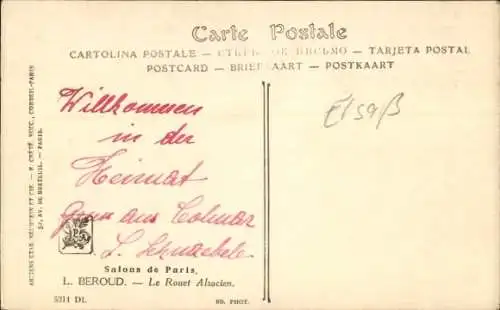 Carte Postale
CARTOLINA POSTALE — ОТКРЫТОЕ ПИСЬМО — TARJETA POSTAL
POSTCARD — BRIEFKAART — POSTKAART
Willkommen
in der
Heimat
Gruss aus Colmar
L. Schnaebele
Salons de Paris,
L. BEROUD. — Le Rouet Alsacien.
5211 DL
ND. PHOT.
ANCIENS ETAB. NEURDEIN ET CIE. — E. CRÉTÉ, SUCC., CORBEIL-PARIS
52, AV. DE BRETEUIL. — PARIS.